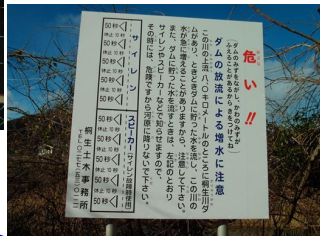 危い!!
(ダムのみずをながし、かわのみずが
ふえることがあるから きをつけてね)
ダムの放流による増水に注意
この川の上流八.〇キロメートルのところに桐生川ダ
ムがあり、ときどきダムに貯った水を流し、この川の
水が急に増えることがありますから、注意して下さい。
また、ダムに貯った水を流すときは、左記のとおり
サイレンやスピーカーなどで知らせますので、
その時には、危険ですから河原に降りないで下さい。
サイレン
50秒
休止10秒
50秒
休止10秒
50秒
休止10秒
50秒
休止10秒
50秒
スピーカー(サイレン故障時使用)
50秒
休止10秒
50秒
休止10秒
50秒
休止10秒
50秒
休止10秒
50秒
桐生土木事務所